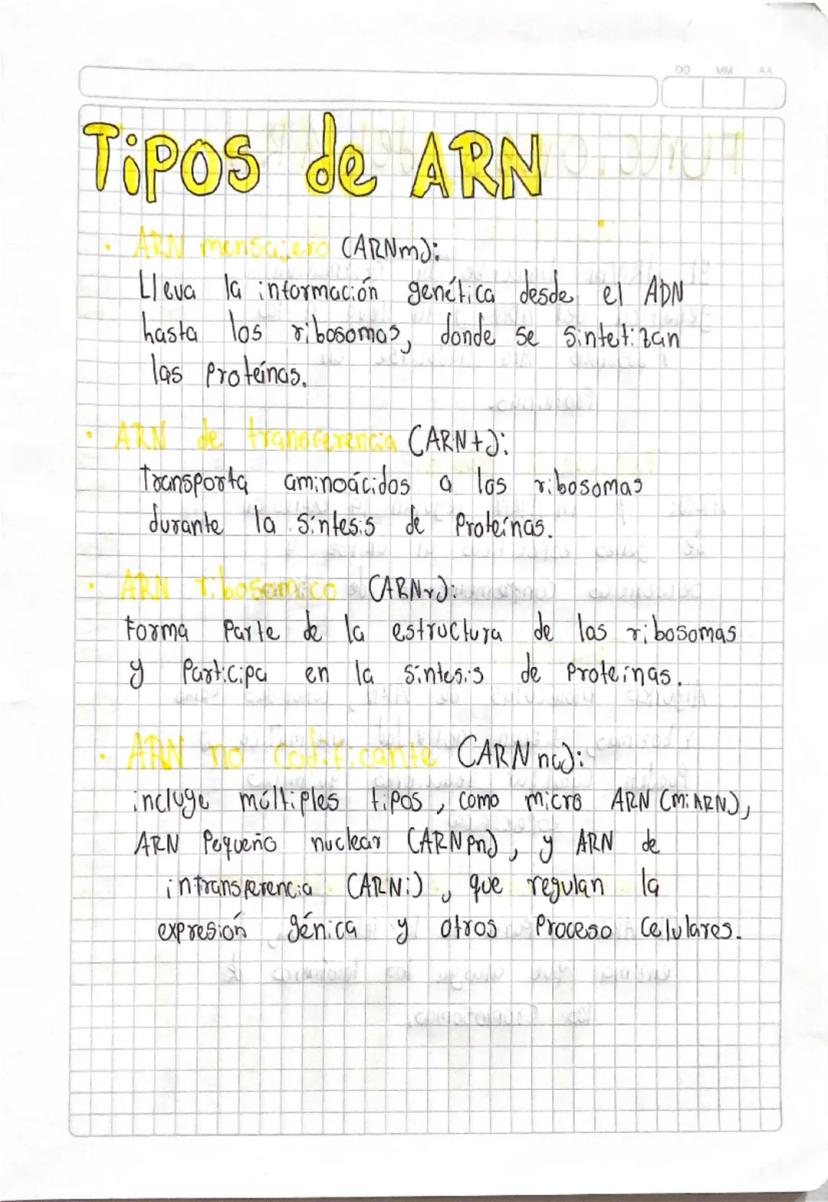 DD MM AA
Tipos de ARN
· ARN mensajero (ARNm):
Lleva la información genética desde el ADN
hasta los ribosomas, donde se sintetizan
las Proteínas.
· ARN de transferencia (ARNt):
Transporta aminoácidos a los ribosomas
durante la síntesis de Proteínas.
· ARN ribosomico (ARNr):
Forma Parte de la estructura de los ribosomas
y Participa en la síntesis de Proteínas.
· ARN no codificante (ARNnc):
incluye múltiples tipos, como micro ARN (miARN),
ARN Pequeño nuclear (ARNpn), y ARN de
intransferencia (ARNi), que regulan la
expresión génica y otros Proceso Celulares.